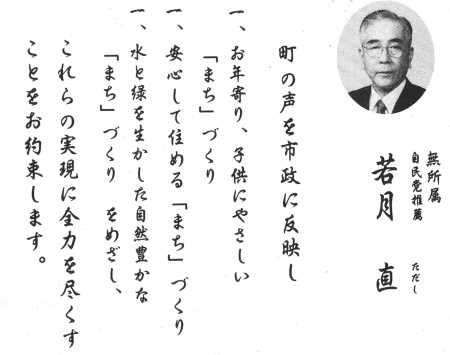 無所属
自民党推薦
若月 直
ただし
町の声を市政に反映し
一、お年寄り、子供にやさしい
「まち」づくり
一、安心して住める「まち」づくり
一、水と緑を生かした自然豊かな
「まち」づくり をめざし、
これらの実現に全力を尽くす
ことをお約束します。